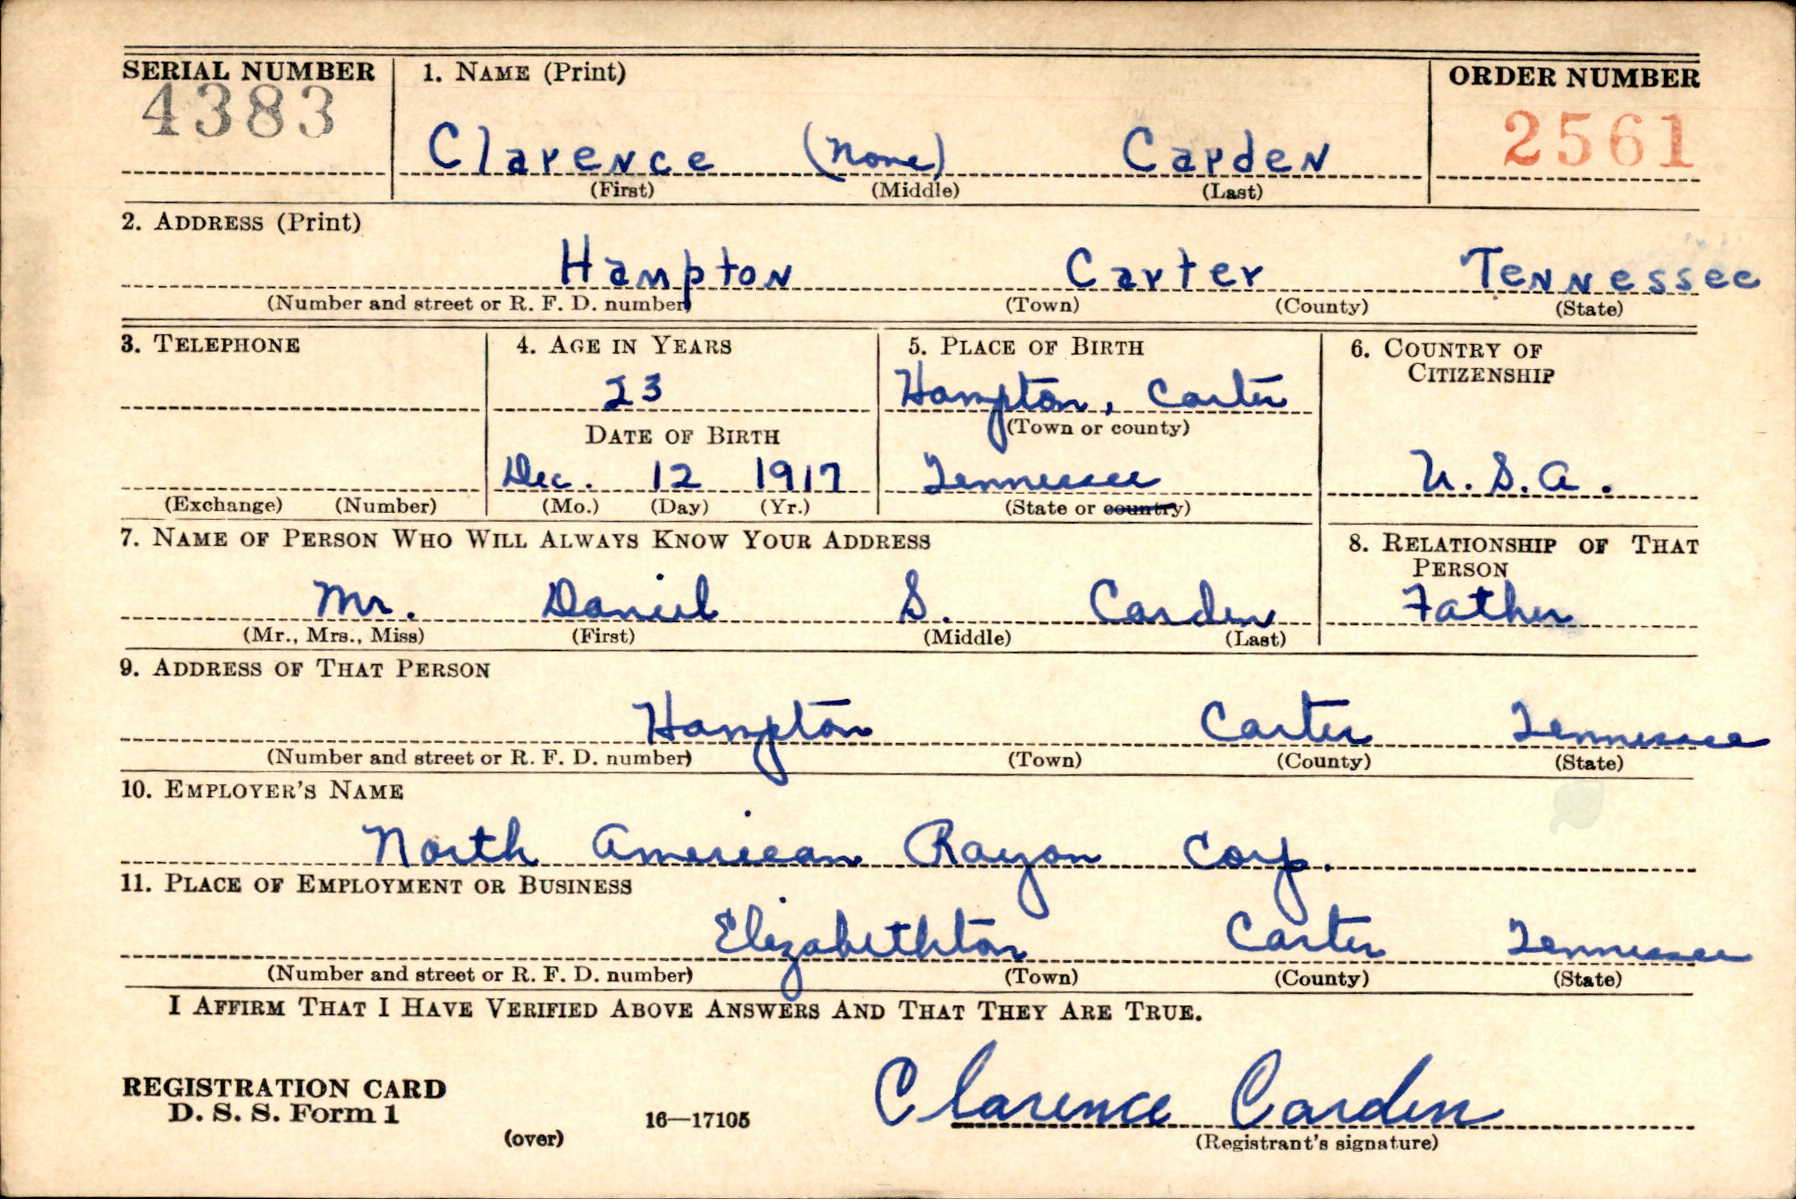 SERIAL NUMBER 1. NAME (Print) ORDER NUMBER
4383 Clarence (None) Carden 2561
(First) (Middle) (Last)
2. ADDRESS (Print)
Hampton Carter Tennessee
(Number and street or R. F. D. number) (Town) (County) (State)
3. TELEPHONE 4. AGE IN YEARS 5. PLACE OF BIRTH 6. COUNTRY OF
CITIZENSHIP
23 Hampton, Carter
(Town or county)
DATE OF BIRTH
Dec. 12 1917 Tennessee U.S.A.
(Exchange) (Number) (Mo.) (Day) (Yr.) (State or country)
7. NAME OF PERSON WHO WILL ALWAYS KNOW YOUR ADDRESS 8. RELATIONSHIP OF THAT
PERSON
Mr. Daniel S. Carden Father
(Mr., Mrs., Miss) (First) (Middle) (Last)
9. ADDRESS OF THAT PERSON
Hampton Carter Tennessee
(Number and street or R. F. D. number) (Town) (County) (State)
10. EMPLOYER'S NAME
North American Rayon Corp.
11. PLACE OF EMPLOYMENT OR BUSINESS
Elizabethton Carter Tennessee
(Number and street or R. F. D. number) (Town) (County) (State)
I AFFIRM THAT I HAVE VERIFIED ABOVE ANSWERS AND THAT THEY ARE TRUE.
REGISTRATION CARD
D. S. S. Form 1 16—17105 Clarence Carden
(over) (Registrant's signature)